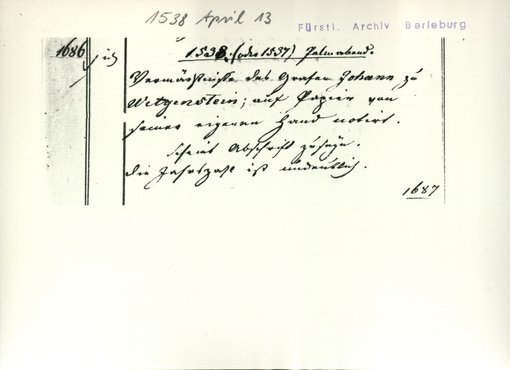 1538 April 13
Fürstl. Archiv Berleburg
1686
1538. (oder 1537) Palmabend.
Vermächtniße des Grafen Johann zu
Witgenstein; auf Papier von
seiner eigenen Hand notirt.
scheint Abschrift zu seyn.
die Jahrszahl ist undeutlich.
1687